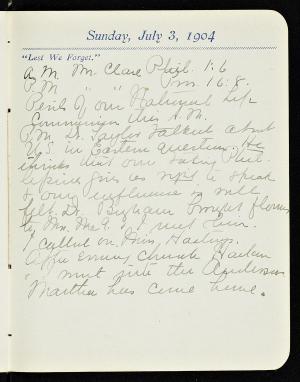 Sunday, July 3, 1904
"Lest We Forget."
A.M. Mr. Clare Phil. 1:6
P.M. " " Rom. 16:8.
Perils of our National Life
Communion this A.M.
P.M. Dr. Taylor talked about
U.S. in Eastern question. He
thinks that our taking Phil-
ippines gives us right to speak
& our influence is well
felt. Dr. Bigham brought flowers
to Mrs. McG. I met him.
I called on Miss Hastings.
After Evening Church Harlan
" went into the Andersons
Martha has come home.